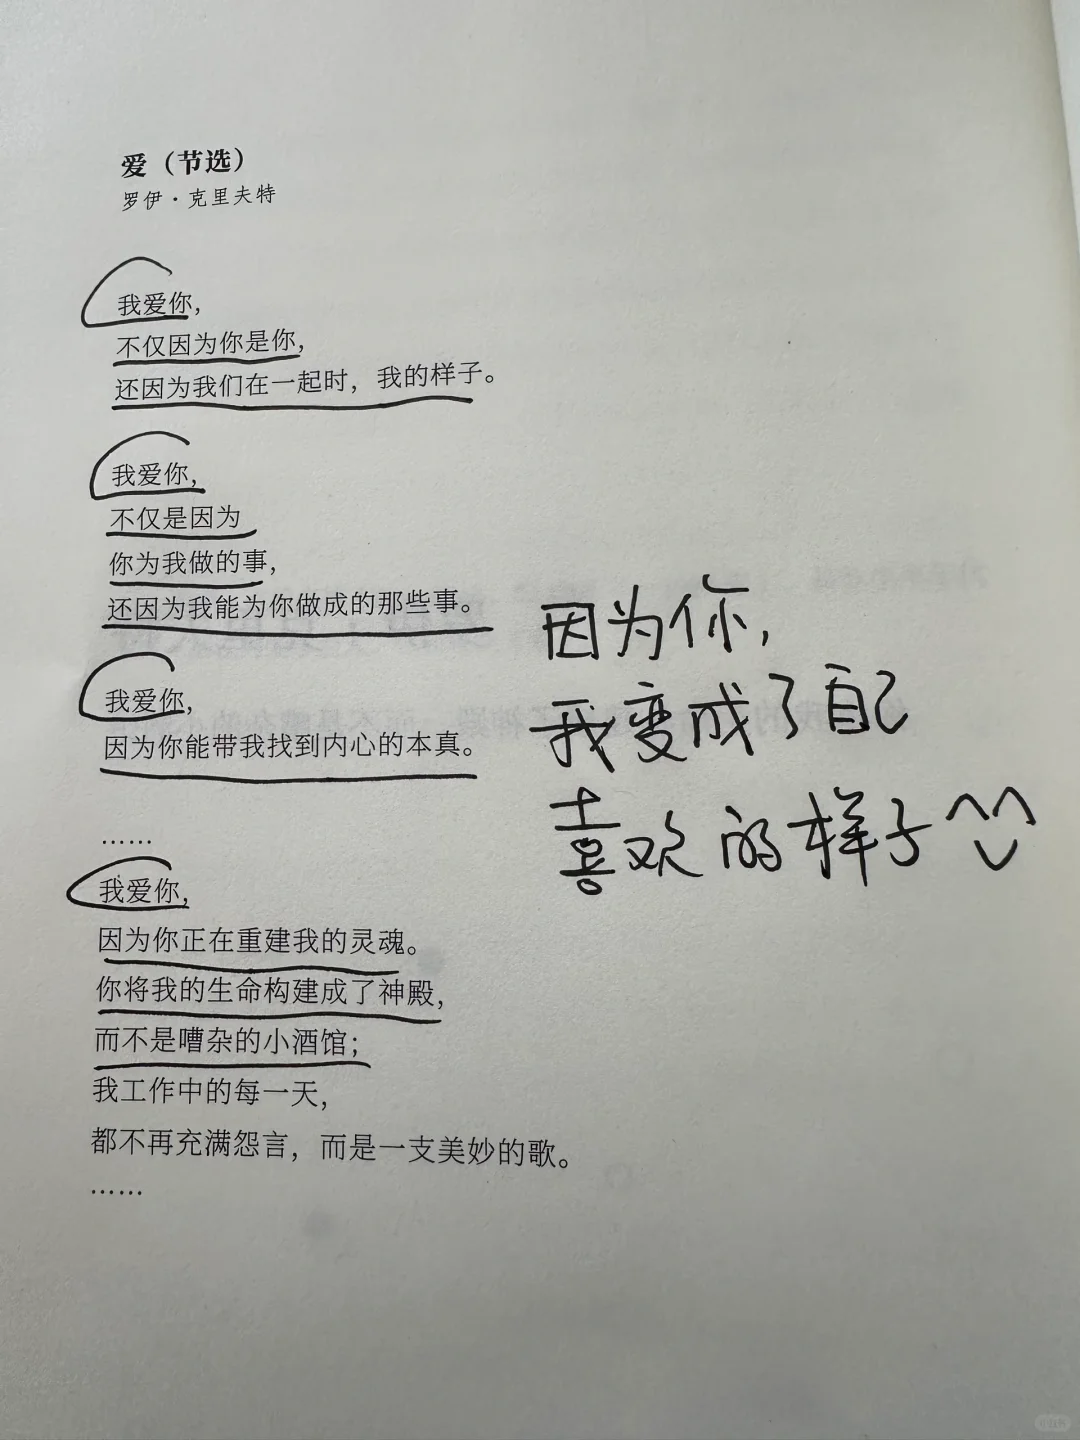 爱（节选）
罗伊·克里夫特
我爱你，
不仅因为你是你，
还因为我们在一起时，我的样子。
我爱你，
不仅是因为
你为我做的事，
还因为我能为你做成的那些事。
我爱你，
因为你能带我找到内心的本真。
……
我爱你，
因为你正在重建我的灵魂。
你将我的生命构建成了神殿，
而不是嘈杂的小酒馆；
我工作中的每一天，
都不再充满怨言，而是一支美妙的歌。
……
因为你，
我变成了自己
喜欢的样子